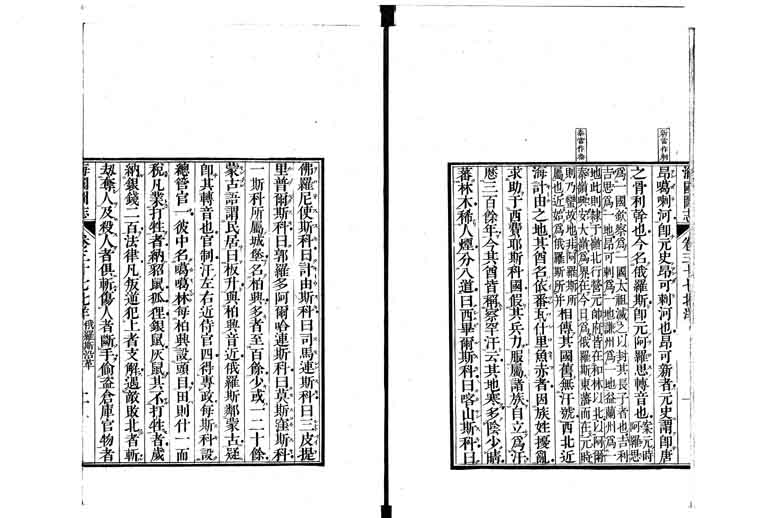 新當作剌
泰當作泰
昂噶喇河卽元史昂可剌河也昂可新者元史謂卽唐
之骨利幹也今名俄羅斯卽元阿羅思轉音也案元時
阿羅思
爲一國欽察爲一國太祖滅之以封其長子者也吉利
吉思爲一地昂可剌爲一地謙州爲一地益蘭州爲一
地此則隸于嶺北行營元帥府皆在和林以北以阿爾
泰嶺興安大嶺爲界在今日爲俄羅斯東藩而在元時
則乃蠻故地非阿羅斯所
屬也近始爲俄羅斯所并
相傳其國舊無汗號西北近
海計由之地其酋名依番瓦什里魚赤者因族姓擾亂
求助于西費耶斯科國假其兵力服屬諸族自立爲汗
厯三百餘年今其酋音稱察罕汗云其地寒多陰少晴
蕃林木稀人煙分八道曰西畢爾斯科曰喀山斯科曰
佛羅尼使斯科曰計由斯科曰司馬連斯科曰三皮提
里普爾斯科曰郭羅多阿爾哈連斯科曰莫斯窪斯科
一斯科所屬城堡名柏興多者至百餘少或一二十餘
蒙古語謂民居曰板升與柏興音近俄羅斯鄰蒙古疑
卽其轉音也官制汗左右近侍官四得專政每斯科設
總管官一彼中名噶噶林每柏興設頭目田則什一而
稅凡業打牲者納貂鼠狐狸銀鼠灰鼠其不打牲者歲
納銀錢二百法律凡叛道犯上者支解遇敵敗北者斬
刼奪人及殺人者俱斬傷人者斷手偷盜倉庫官物者
海國圖志 卷三十七 北洋 俄羅斯沿革 二十